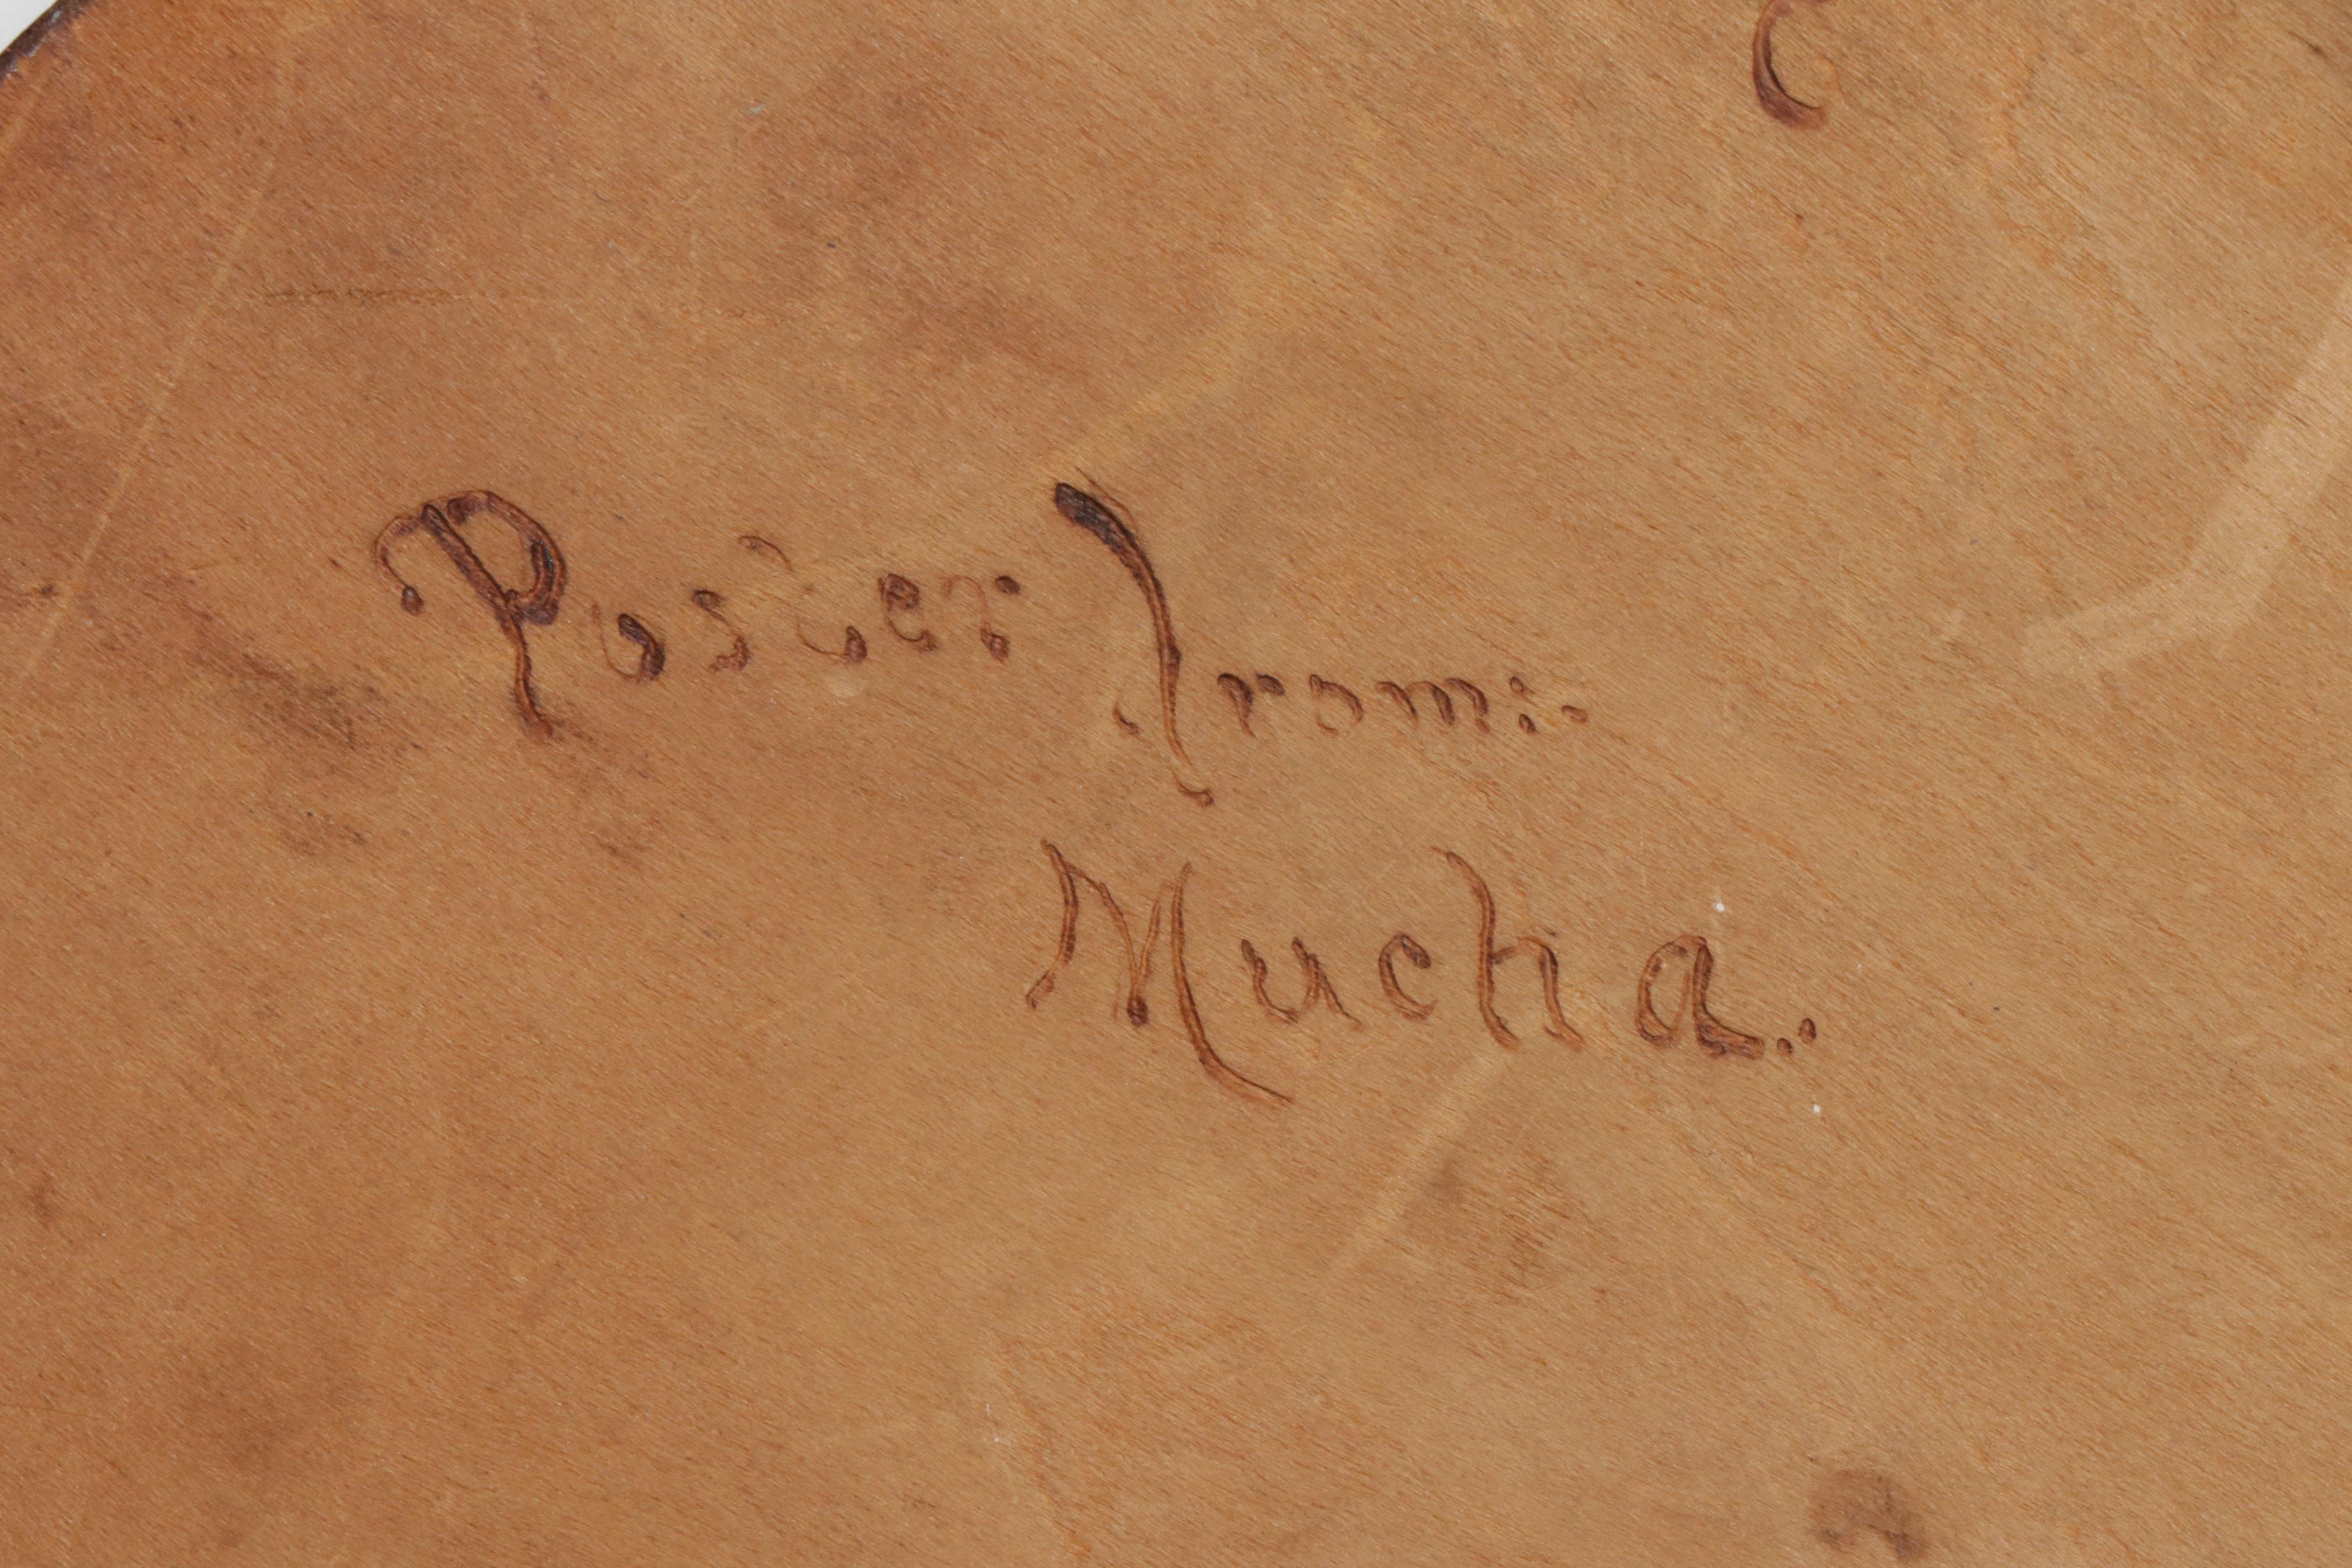 Poster from:-
Mucha..